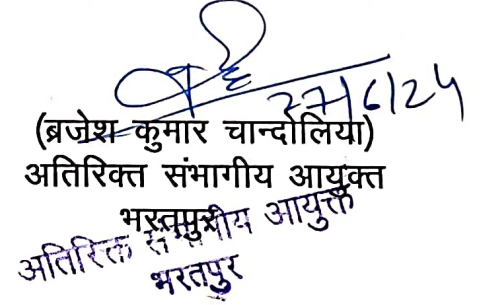 27/6/24
(ब्रजेश कुमार चान्दोलिया)
अतिरिक्त संभागीय आयुक्त
भरतपुर
अतिरिक्त संभागीय आयुक्त
भरतपुर